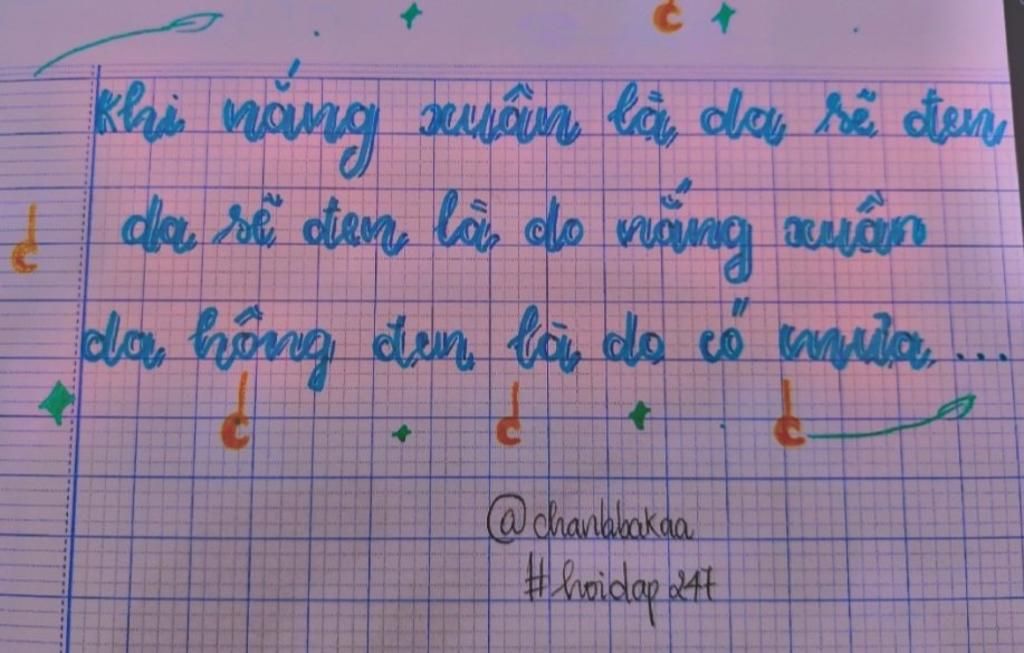 Khi nắng xuân là da sẽ đen
da sẽ đen là do nắng xuân
da hông đen là do có mưa...
@chanlabakaa
#hoidap247